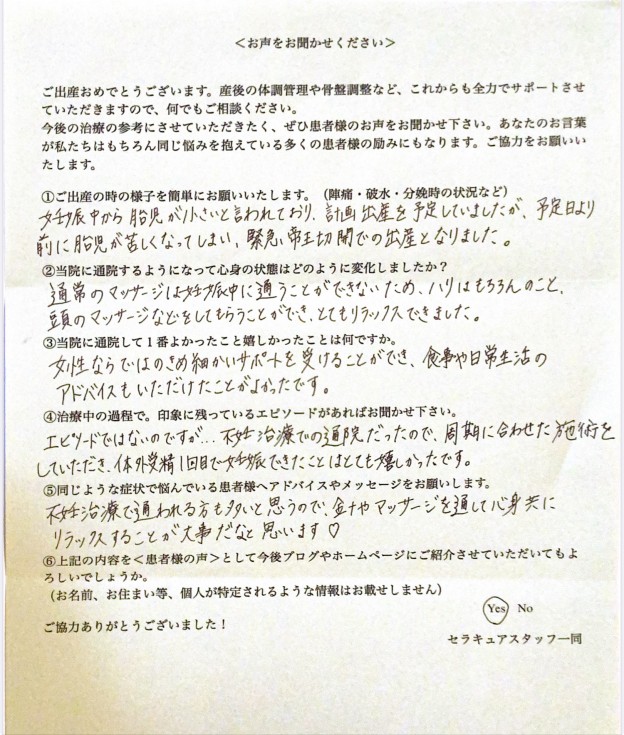 ＜お声をお聞かせください＞
ご出産おめでとうございます。産後の体調管理や骨盤調整など、これからも全力でサポートさせ
ていただきますので、何でもご相談ください。
今後の治療の参考にさせていただきたく、ぜひ患者様のお声をお聞かせ下さい。あなたのお言葉
が私たちはもちろん同じ悩みを抱えている多くの患者様の励みにもなります。ご協力をお願いい
たします。
①ご出産の時の様子を簡単にお願いいたします。（陣痛・破水・分娩時の状況など）
妊娠中から胎児が小さいと言われており、計画出産を予定していましたが、予定日より
前に胎児が苦しくなってしまい、緊急帝王切開での出産となりました。
②当院に通院するようになって心身の状態はどのように変化しましたか？
通常のマッサージは妊娠中に通うことができないため、ハリはもちろんのこと、
頭のマッサージなどをしてもらうことができ、とてもリラックスできました。
③当院に通院して１番よかったこと嬉しかったことは何ですか。
女性ならではのきめ細かいサポートを受けることができ、食事や日常生活の
アドバイスもいただけたことがよかったです。
④治療中の過程で。印象に残っているエピソードがあればお聞かせ下さい。
エピソードではないのですが…不妊治療での通院だったので、周期に合わせた施術を
していただき、体外受精1回目で妊娠できたことはとても嬉しかったです。
⑤同じような症状で悩んでいる患者様へアドバイスやメッセージをお願いします。
不妊治療で通われる方も多いと思うので、金十やマッサージを通して心身共に
リラックスすることが大事だなと思います♡
⑥上記の内容を＜患者様の声＞として今後ブログやホームページにご紹介させていただいてもよ
ろしいでしょうか。
（お名前、お住まい等、個人が特定されるような情報はお載せしません）
Yes No
ご協力ありがとうございました！
セラキュアスタッフ一同